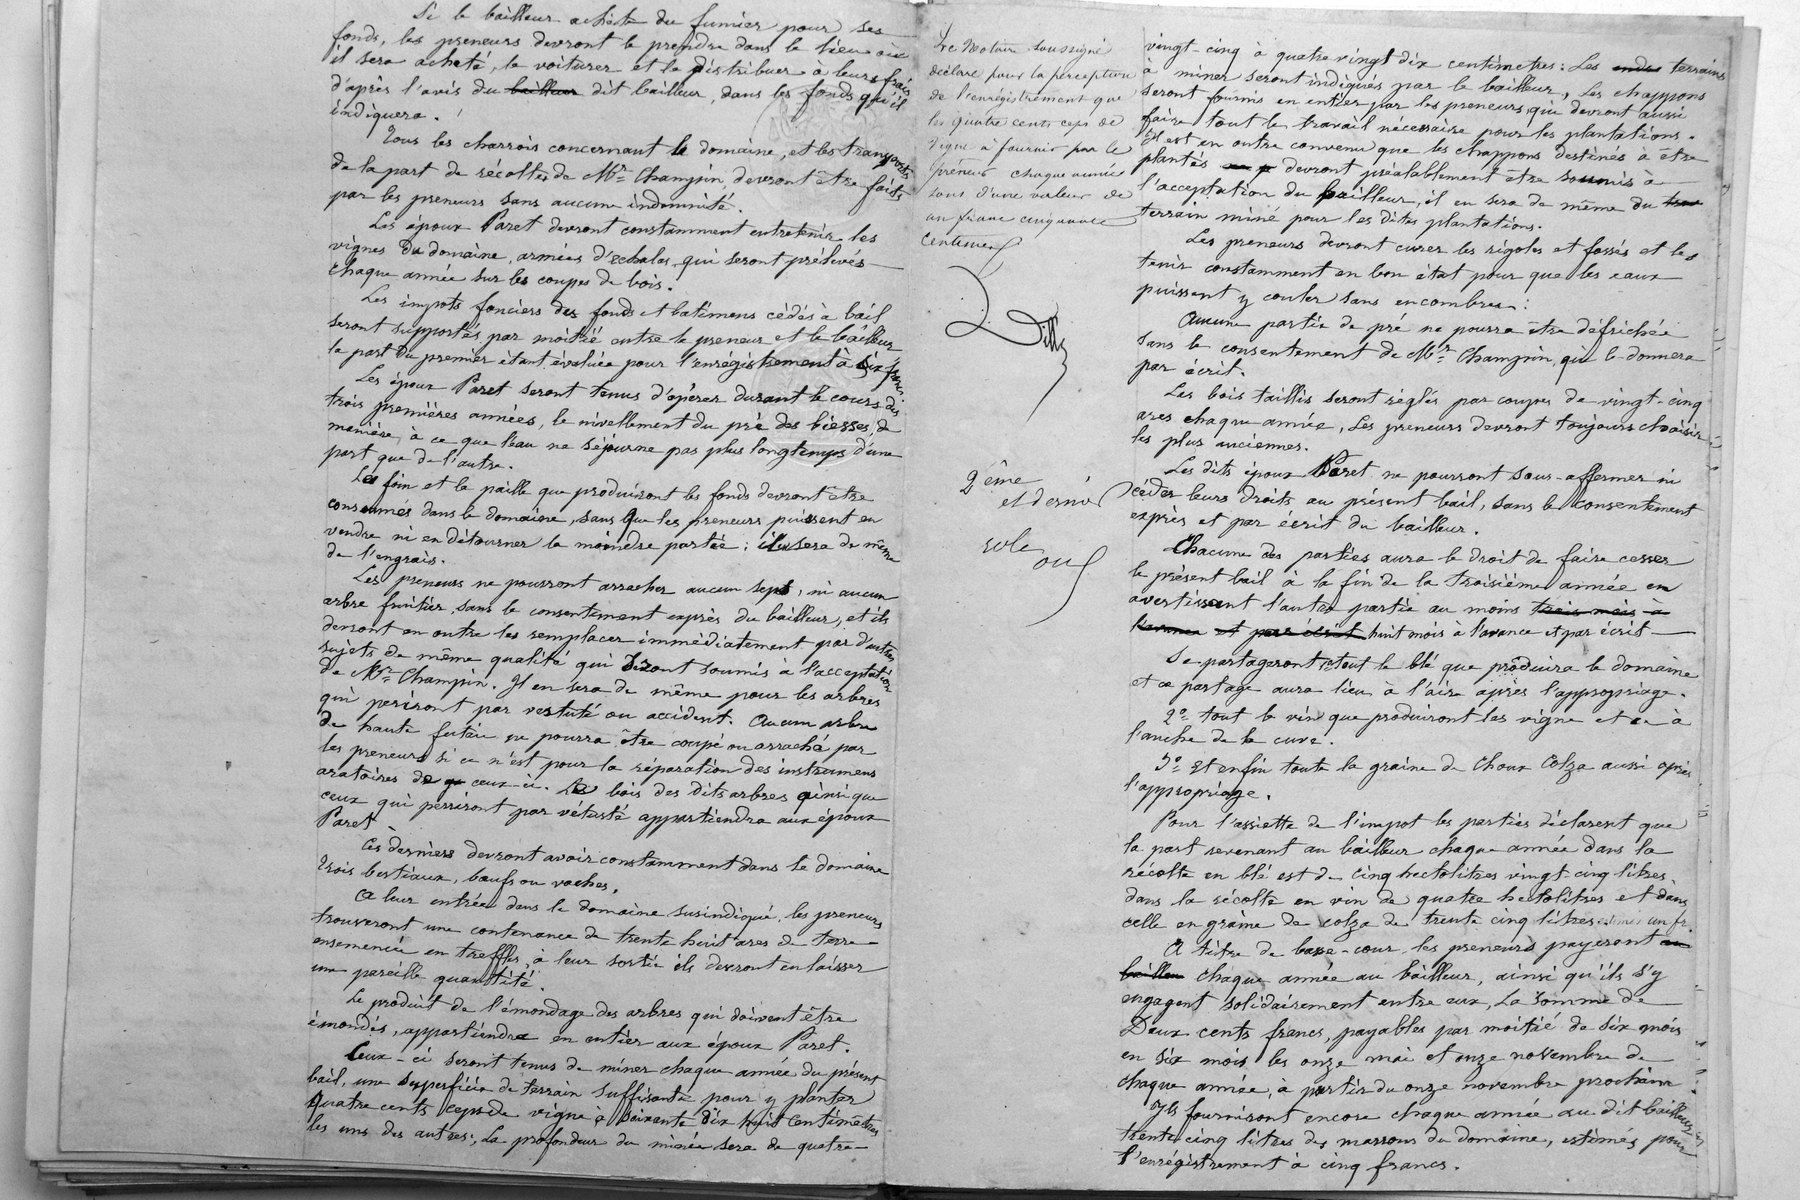 Si le bailleur achète du fumier pour ses
fonds, les preneurs devront le prendre dans le lieu où
il sera acheté, le voiturer et le distribuer à leurs frais
d'après l'avis du bailleur dit bailleur, dans les fonds qu'il
indiquera.
Tous les charrois concernant le domaine, et les transports
de la part de récoltes de Mr. Champin, devront être faits
par les preneurs sans aucune indemnité.
Les époux Paret devront constamment entretenir les
vignes du domaine, armées d'echalas, qui seront prélevés
chaque année sur les coupes de bois.
Les impots fonciers des fonds et batimens cédés à bail
seront supportés par moitié entre le preneur et le bailleur
la part du premier étant évaluée pour l'enrégistrement à six francs.
Les époux Paret seront tenus d'opérer durant le cours des
trois premières années, le nivellement du pré des biesses, de
manière à ce que l'eau ne séjourne pas plus longtemps d'une
part que de l'autre.
Le foin et la paille que produiront les fonds devront être
consommés dans le domaine, sans que les preneurs puissent en
vendre ni en détourner la moindre partie; il en sera de même
de l'engrais.
Les preneurs ne pourront arracher aucun seps, ni aucun
arbre fruitier, sans le consentement exprès du bailleur, et ils
devront en outre les remplacer immédiatement par d'autres
sujets de même qualité qui seront soumis à l'acceptation
de Mr. Champin. Il en sera de même pour les arbres
qui periront par vestuté ou accident. Aucun arbre
de haute futaie ne pourra être coupé ou arraché par
les preneurs si ce n'est pour la réparation des instrumens
aratoires de ceux-ci. Le bois des dits arbres ainsi que
ceux qui perriront par vétusté appartiendra aux époux
Paret
Ces derniers devront avoir constamment dans le domaine
trois bestiaux, bœufs ou vaches.
A leur entrée dans le domaine susindiqué, les preneurs
trouveront une contenance de trente huit ares de terre
ensemencée en treffles, à leur sortie ils devront en laisser
une pareille quantité.
Le produit de l'émondage des arbres qui doivent être
émondés, appartiendra en entier aux époux Paret.
Ceux-ci seront tenus de miner chaque année du présent
bail, une superficie de terrain suffisante pour y planter
quatre cents ceps de vigne à soixante dix huit centimètres
les uns des autres; La profondeur du minée sera de quatre-
Le Notaire soussigné
déclare pour la perception
de l'enrégistrement que
les quatre cents ceps de
vigne à fournir par le
preneur chaque année
sont d'une valeur de
un franc cinquante
centimes
2ème
et dernier
role
vingt-cinq à quatre vingt dix centimetres: Les terrains
à miner seront indiqués par le bailleur, Les chappons
seront fournis en entier par les preneurs, qui devront aussi
faire tout le travail nécessaire pour les plantations.
Il est en outre convenu que les chappons destinés à être
plantés devront préalablement être soumis à
l'acceptation du bailleur, il en sera de même du
terrain miné pour les dites plantations.
Les preneurs devront curer les rigoles et fossés et les
tenir constamment en bon état pour que les eaux
puissent y couler sans encombre:
Aucune partie de pré ne pourra être défrichée
sans le consentement de Mr. Champin, qui le donnera
par écrit.
Les bois taillis seront réglés par coupes de vingt-cinq
ares chaque année, Les preneurs devront toujours choisir
les plus anciennes.
Les dits époux Paret ne pourront sous-affermer ni
céder leurs droits au présent bail, sans le consentement
exprès et par écrit du bailleur.
Chacune des parties aura le droit de faire cesser
le présent bail à la fin de la troisième année en
avertissant l'autre partie au moins trois mois à
l'avance et par écrit huit mois à l'avance et par écrit
Se partageront 1º tout le blé que produira le domaine
et ce partage aura lieu à l'aire après l'appropriage.
2º tout le vin que produiront les vigne et ce à
l'anche de la cuve.
3º et enfin toute la graine de choux colza aussi après
l'appropriage.
Pour l'assiette de l'impot les parties déclarent que
la part revenant au bailleur chaque année dans la
récolte en blé est de cinq hectolitres vingt-cinq litres,
dans la récolte en vin de quatre hectolitres et dans
celle en graine de colza de trente cinq litres un fr.
A titre de basse-cour les preneurs payeront au
bailleur chaque année au bailleur, ainsi qu'ils s'y
engagent solidairement entre eux, La somme de
Deux cents francs, payables par moitié de six mois
en six mois les onze mai et onze novembre de
chaque année, à partir du onze novembre prochain
Ils fourniront encore chaque année au dit bailleur
trente cinq litres des marrons du domaine, estimés pour
l'enrégistrement à cinq francs.